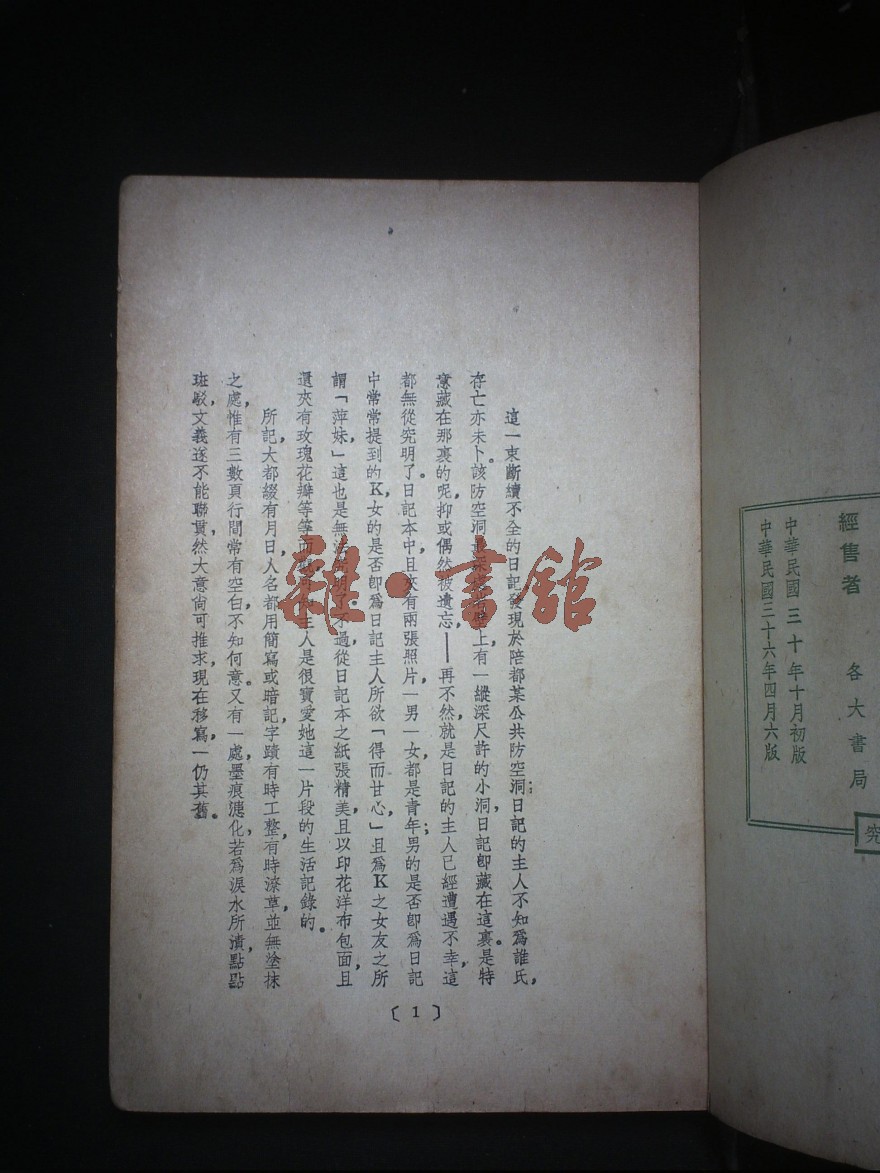 經售者 各大書局
中華民國三十年十月初版
中華民國三十六年四月六版
這一束斷續不全的日記發現於陪都某公共防空洞；日記的主人不知爲誰氏，
存亡亦未卜。該防空洞最深處岩壁上有一縱深尺許的小洞，日記卽藏在這裏。是特
意藏在那裏的呢，抑或偶然被遺忘，——再不然，就是日記的主人已經遭遇不幸，這
都無從究明了。日記本中，且夾有兩張照片，一男一女，都是青年；男的是否卽爲日記
中常常提到的K，女的是否卽爲日記主人所欲「得而甘心」且爲K之女友之所
謂「萍妹」，這也是無法究明了。不過從日記本之紙張精美，且以印花洋布包面，且
還夾有玫瑰花瓣等等，而可知主人是很寶愛她這一片段的生活記錄的。
所記，大都綴有月日，人名都用簡寫或暗記，字蹟有時工整，有時潦草，並無塗抹
之處，惟有三數頁行間常有空白，不知何意。又有一處，墨痕漶化，若爲淚水所漬，點點
班駁，文義遂不能聯貫，然大意尚可推求，現在移寫，一仍其舊。
〔1〕
雜·書館